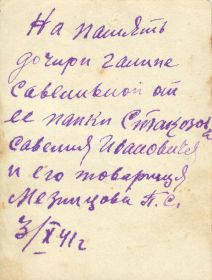 На память
дочири галине
савеливной от
ее папки Стакозова
савелия Ивановича
и его товарища
Мезинцова П. С.
3/X 41 г